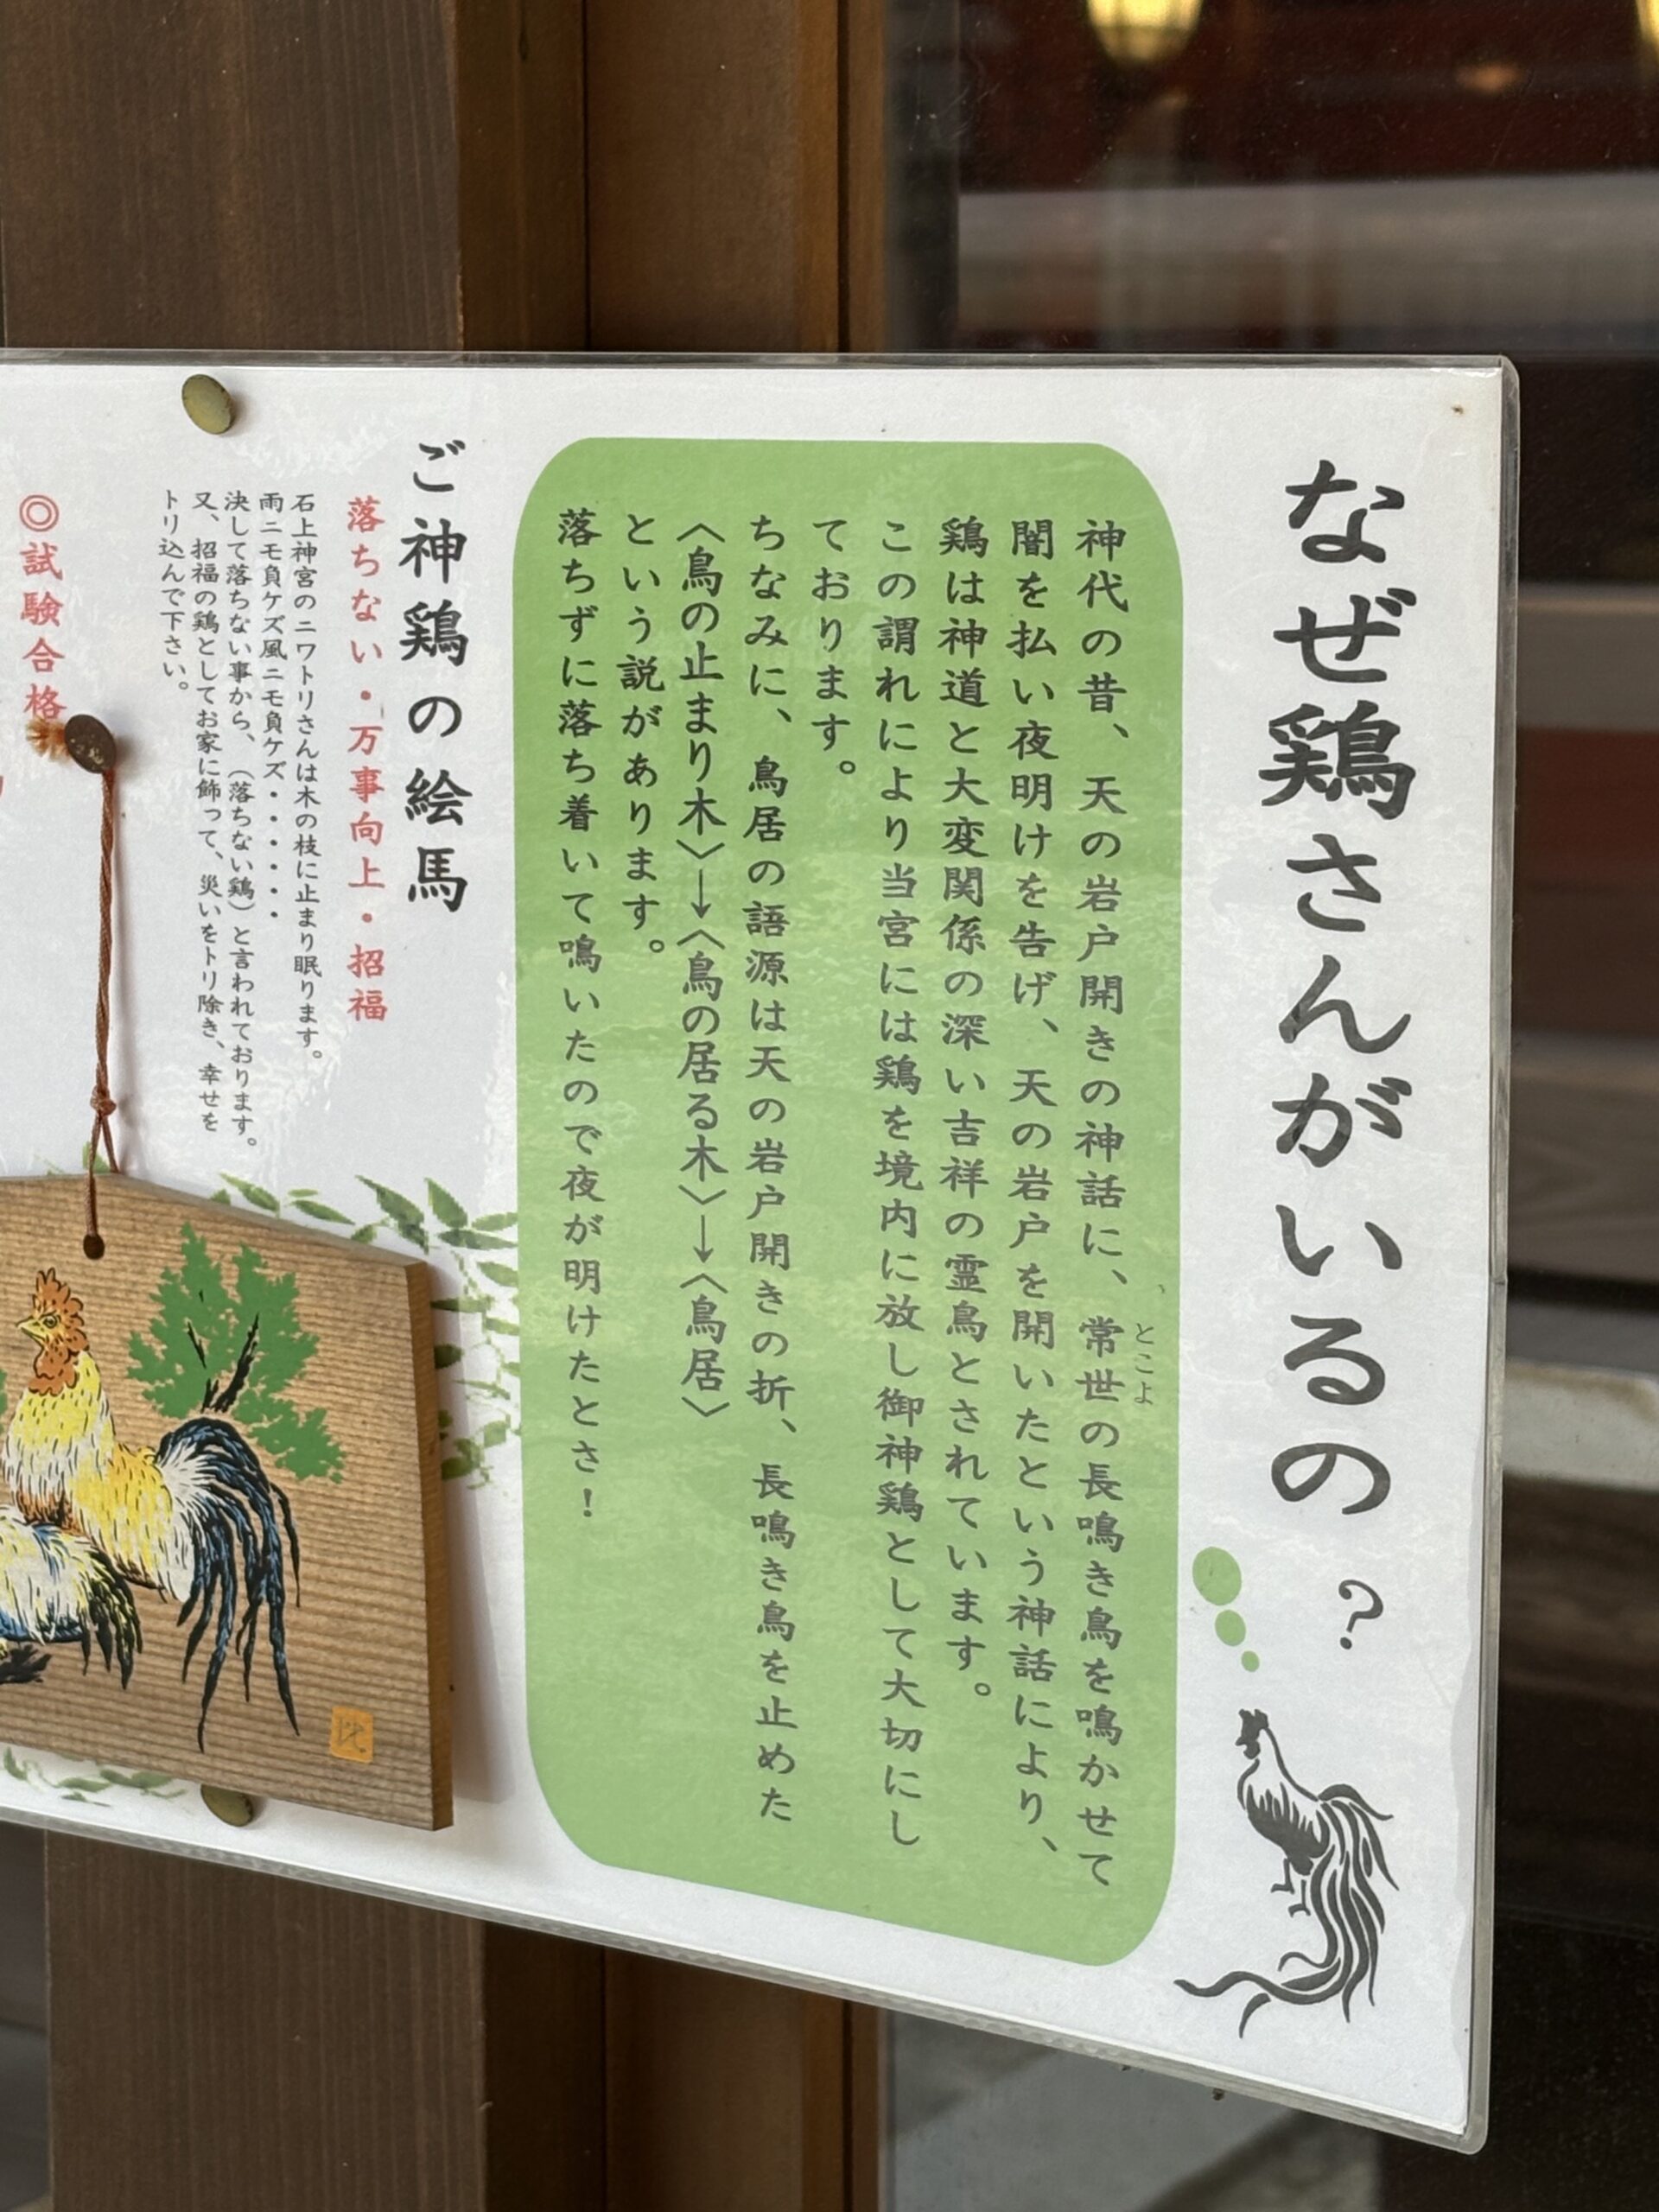 なぜ鶏さんがいるの？
神代の昔、天の岩戸開きの神話に、常世の長鳴き鳥を鳴かせて
とこよ
闇を払い夜明けを告げ、天の岩戸を開いたという神話により、
鶏は神道と大変関係の深い吉祥の霊鳥とされています。
この謂れにより当宮には鶏を境内に放し御神鶏として大切にし
ております。
ちなみに、鳥居の語源は天の岩戸開きの折、長鳴き鳥を止めた
〈鳥の止まり木〉→〈鳥の居る木〉→〈鳥居〉
という説があります。
落ちずに落ち着いて鳴いたので夜が明けたとさ！
ご神鶏の絵馬
落ちない・万事向上・招福
石上神宮のニワトリさんは木の枝に止まり眠ります。
雨ニモ負ケズ風ニモ負ケズ・・・・・・
決して落ちない事から、（落ちない鶏）と言われております。
又、招福の鶏としてお家に飾って、災いをトリ除き、幸せを
トリ込んで下さい。
◎試験合格